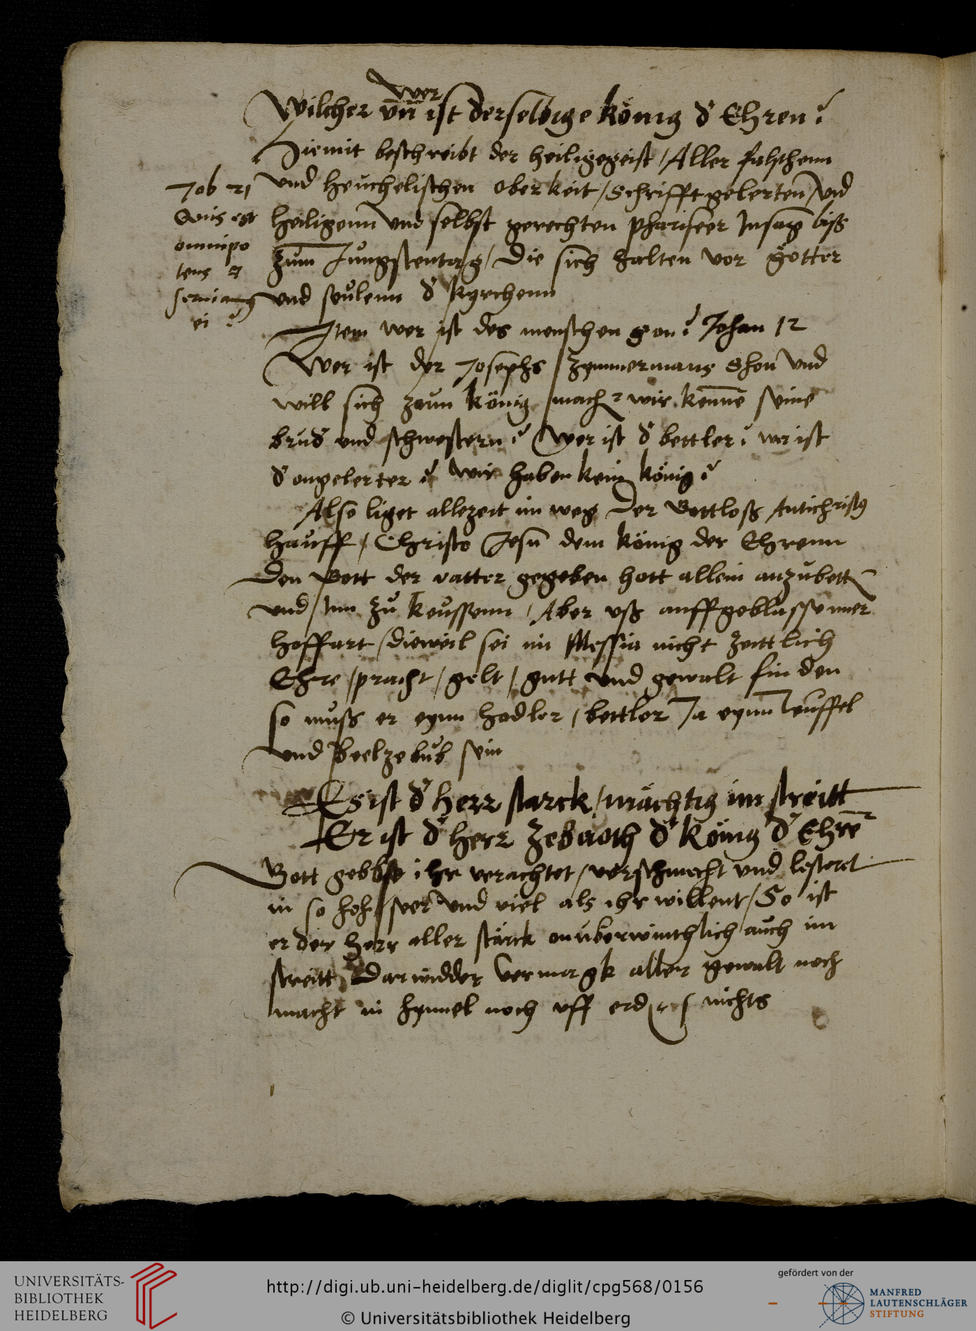 wer
Wilcher vn̄ ist derselbige König d' Ehren?
Hiemit beschreibt der heiligegeist / Aller falschenn
und heuchelischen oberkeit / Schrifftgelerten / und
heiligenn und selbst gerechten phariseer Insag biss
zum Jungstentag / Die sich halten vor götter
und seulenn d' kyrchenn
Job 21
Quis est
omnipo
tens
serviam
ei?
Item wer ist des menschen son? Johan 12
Wer ist der Josephs / Zymmermans Shon und
will sich zum König mach wir kennē seine
brud' und schwestern? Wer ist d' bettler? wer ist
d' ongelerter? wir haben kein König?
Also liget allezeit im weg Der Gottloss Antichrists
hauff / Christo Jesu dem König der Ehrenn
Den Gott der vatter gegeben hott allein anzubett
und / Inn zu Keussenn / Aber uss auffgeblassenner
hoffart / dieweil sei im Messia nicht zeittlich
Ehre / pracht / gelt / gutt und gewalt finden
so muss er eynn hodler / bettler Ja eynn Teuffel
und Beelzebub sein
Es ist d' herr starck / mächtig im streitt
Er ist d' herr Zebaoth d' König d' Ehrē
Gott gebbe ihr verachtet / verschmecht und lestert
in so hoh / ser und viel als ihr willent / So ist
er der herr aller stärck onüberwinthlich auch im
streitt Darwidder vermagk aller gewalt noch
macht in hymel noch uff erd nichts
UNIVERSITÄTS-
BIBLIOTHEK
HEIDELBERG
http://digi.ub.uni-heidelberg.de/diglit/cpg568/0156
© Universitätsbibliothek Heidelberg
gefördert von der
MANFRED
LAUTENSCHLÄGER
STIFTUNG